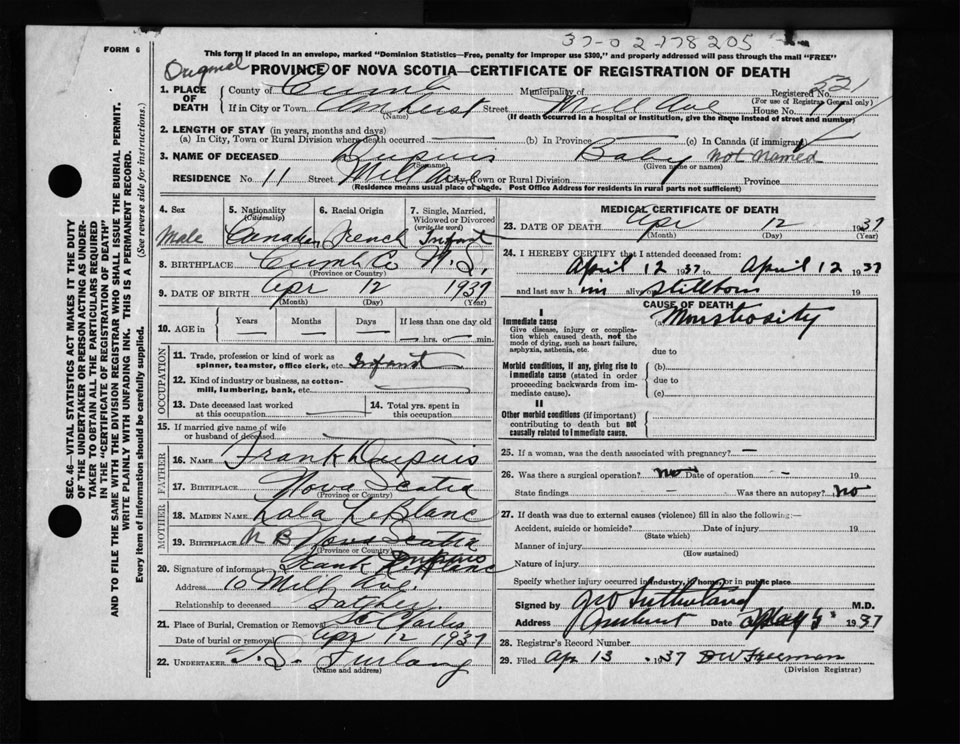 37-0 2-178205
FORM 6
This form if placed in an envelope, marked "Dominion Statistics—Free, penalty for improper use $300," and properly addressed will pass through the mail "FREE"
Original
PROVINCE OF NOVA SCOTIA—CERTIFICATE OF REGISTRATION OF DEATH
1. PLACE OF DEATH
County of Cumb Municipality of Registered No. 52
(For use of Registrar General only)
If in City or Town Amherst Street Mill Ave House No. 11
(Name) (If death occurred in a hospital or institution, give the name instead of street and number)
2. LENGTH OF STAY (in years, months and days)
(a) In City, Town or Rural Division where death occurred (b) In Province (c) In Canada (if immigrant)
3. NAME OF DECEASED Dupuis Baby Not Named
(Surname) (Given name or names)
RESIDENCE No. 11 Street Mill Ave City, Town or Rural Division Province
(Residence means usual place of abode. Post Office Address for residents in rural parts not sufficient)
4. Sex 5. Nationality (Citizenship) 6. Racial Origin 7. Single, Married, Widowed or Divorced (write the word)
Male Canadian French Infant
8. BIRTHPLACE Cumb Co N.S.
(Province or Country)
9. DATE OF BIRTH Apr 12 1937
(Month) (Day) (Year)
10. AGE in Years Months Days If less than one day old
hrs. or min.
OCCUPATION
11. Trade, profession or kind of work as spinner, teamster, office clerk, etc. Infant
12. Kind of industry or business, as cotton-mill, lumbering, bank, etc.
13. Date deceased last worked at this occupation 14. Total yrs. spent in this occupation
15. If married give name of wife or husband of deceased
FATHER
16. NAME Frank Dupuis
17. BIRTHPLACE Nova Scotia
(Province or Country)
MOTHER
18. MAIDEN NAME Lola LeBlanc
19. BIRTHPLACE N B Nova Scotia
(Province or Country)
20. Signature of informant Frank Dupuis
Address 10 Mill Ave.
Relationship to deceased Father.
21. Place of Burial, Cremation or Removal
Date of burial or removal Apr 12 1937
22. UNDERTAKER Furlong
(Name and address)
MEDICAL CERTIFICATE OF DEATH
23. DATE OF DEATH Apr 12 1937
(Month) (Day) (Year)
24. I HEREBY CERTIFY that I attended deceased from:
April 12 1937 to April 12 1937
and last saw him alive Stillborn 19
CAUSE OF DEATH
I
Immediate cause (a) Monstrosity
Give disease, injury or complication which caused death, not the mode of dying, such as heart failure, asphyxia, asthenia, etc.
due to
Morbid conditions, if any, giving rise to immediate cause (stated in order proceeding backwards from immediate cause).
(b)
due to
(c)
II
Other morbid conditions (if important) contributing to death but not causally related to immediate cause.
25. If a woman, was the death associated with pregnancy? —
26. Was there a surgical operation? no Date of operation — 19
State findings — Was there an autopsy? no
27. If death was due to external causes (violence) fill in also the following:—
Accident, suicide or homicide? Date of injury 19
(State which)
Manner of injury
(How sustained)
Nature of injury
Specify whether injury occurred in industry, home, or in public place
Signed by Sutherland M.D.
Address Amherst Date May 5 1937
28. Registrar's Record Number
29. Filed Apr 13 1937 D W Freeman
(Division Registrar)
SEC. 46—VITAL STATISTICS ACT MAKES IT THE DUTY
OF THE UNDERTAKER OR PERSON ACTING AS UNDER-
TAKER TO OBTAIN ALL THE PARTICULARS REQUIRED
IN THE "CERTIFICATE OF REGISTRATION OF DEATH"
AND TO FILE THE SAME WITH THE DIVISION REGISTRAR WHO SHALL ISSUE THE BURIAL PERMIT.
WRITE PLAINLY WITH UNFADING INK. THIS IS A PERMANENT RECORD.
Every item of information should be carefully supplied. (See reverse side for instructions.)